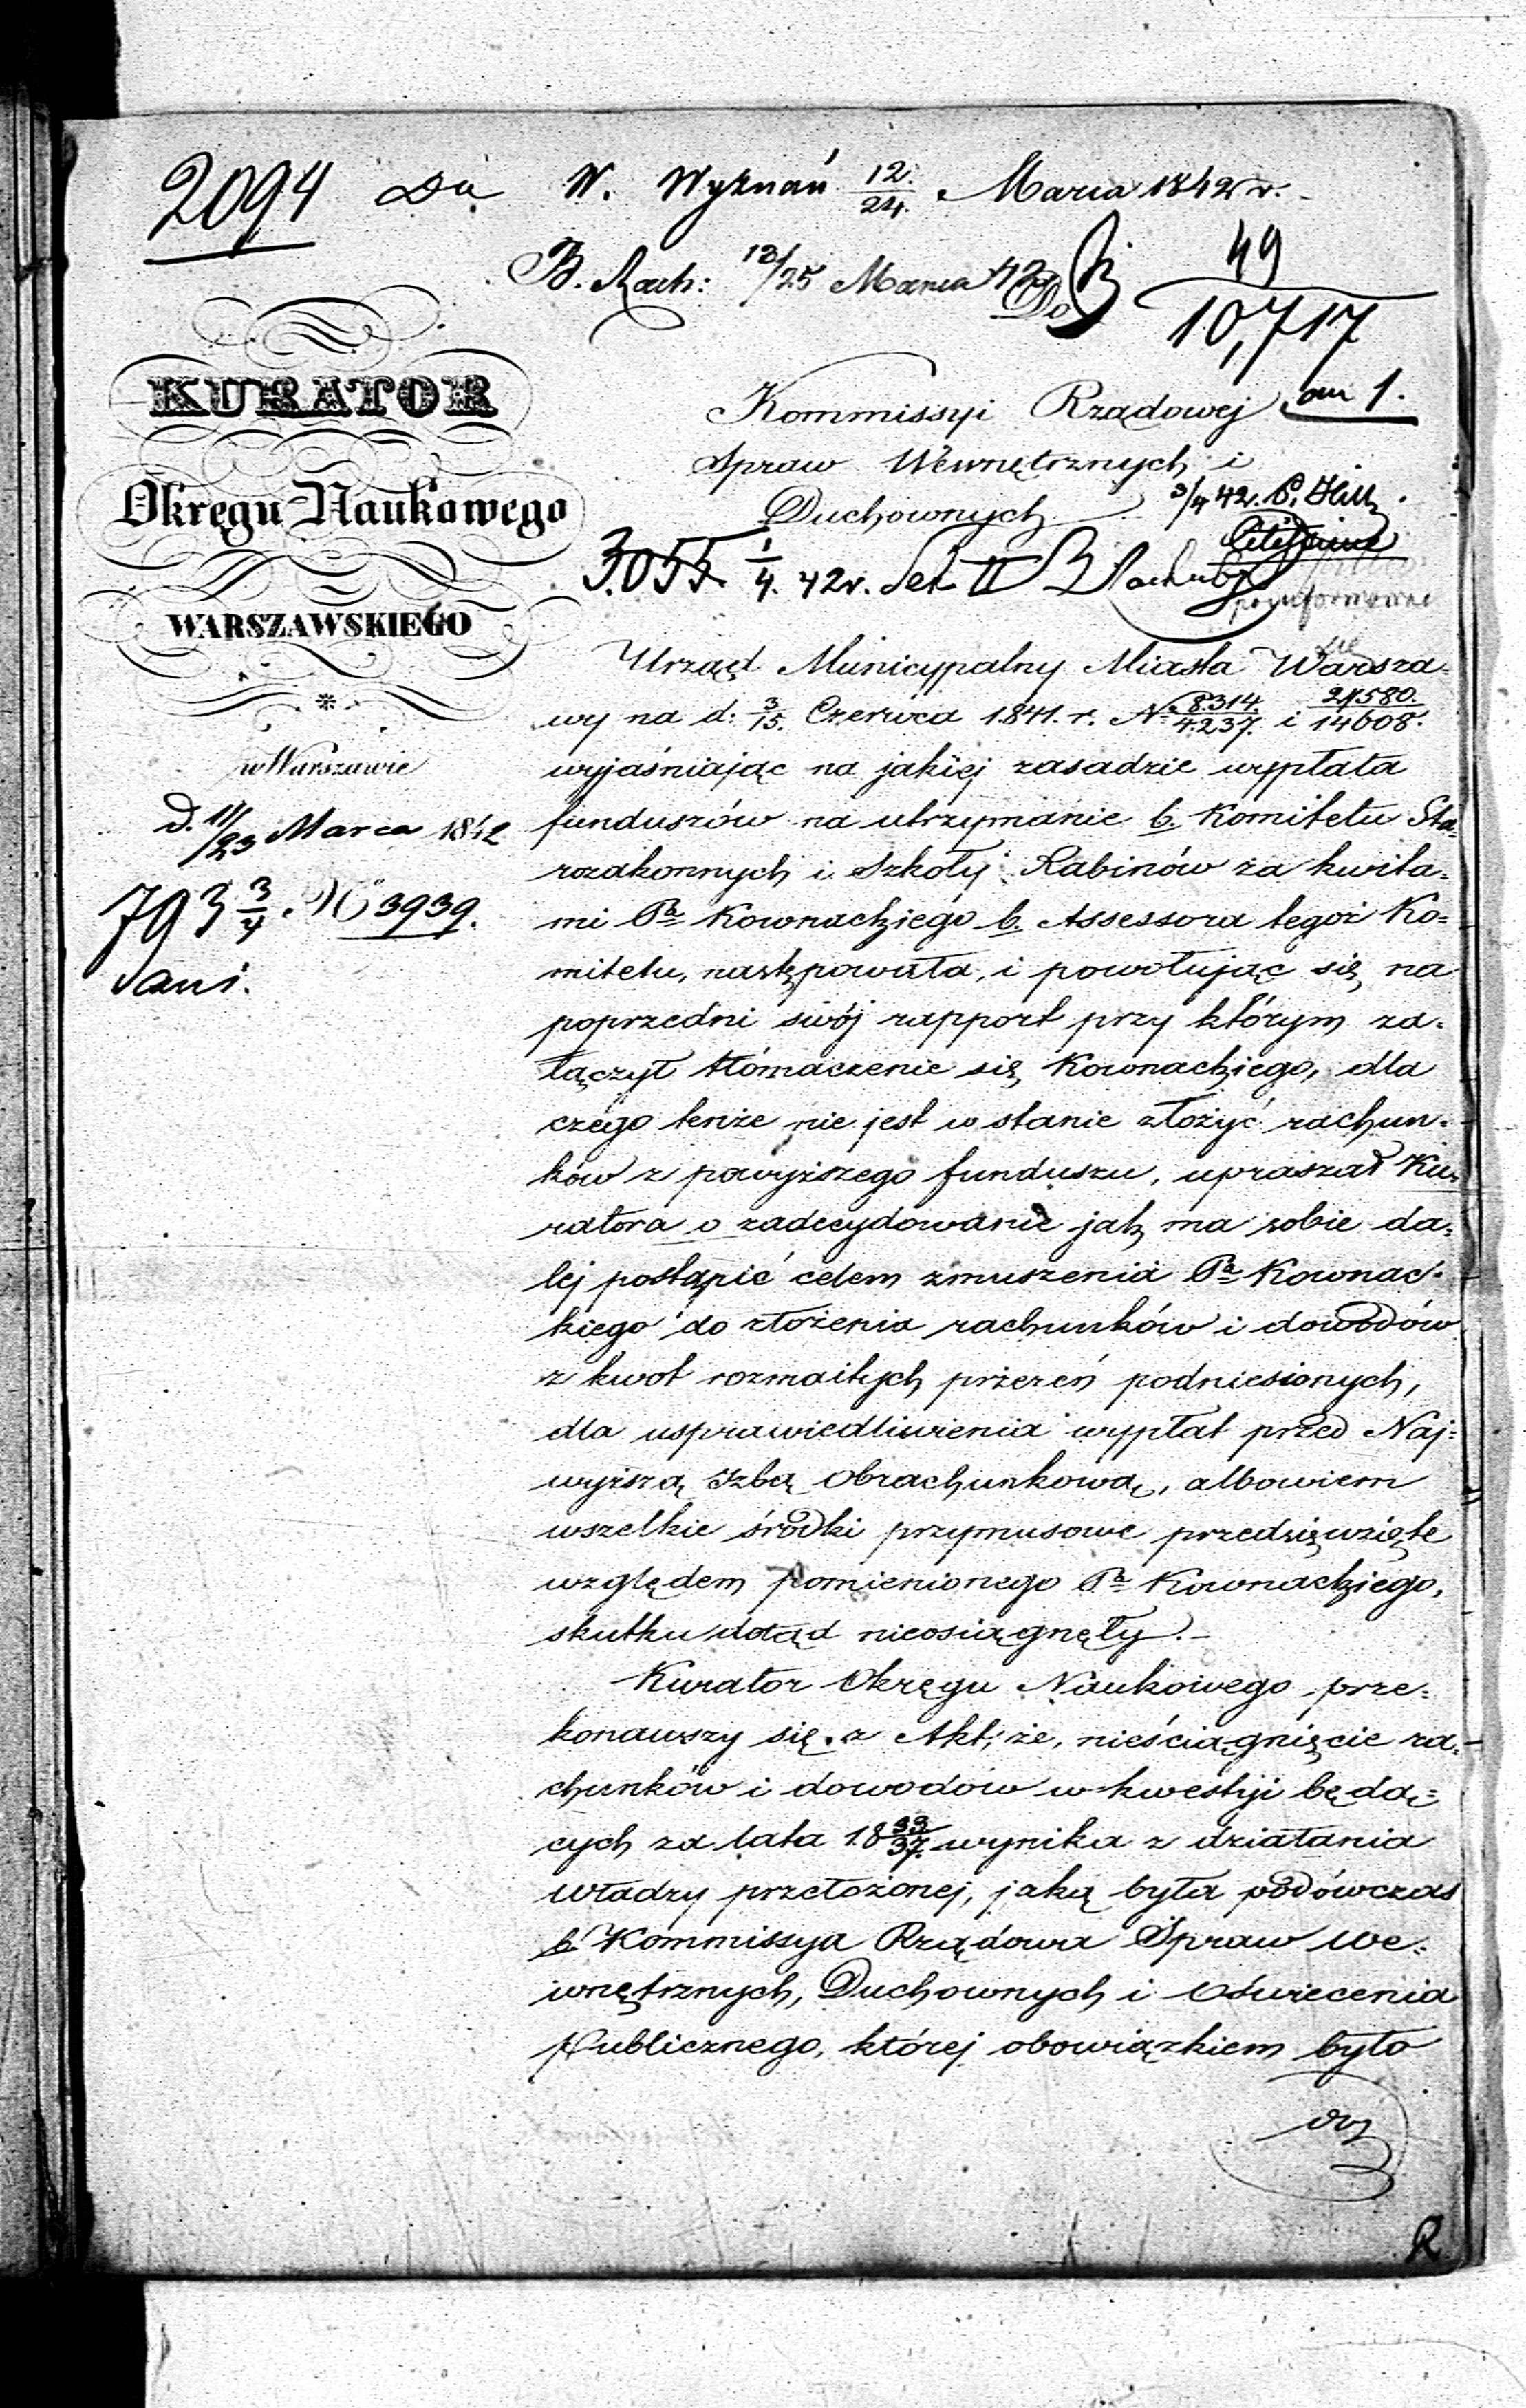 2094 Du W. Wyznań 12/24 Marca 1842 r.
B. Rach: 13/25 Marca 42
49
10,717
Do
KURATOR
Okręgu Naukowego
WARSZAWSKIEGO
w Warszawie
d. 11/23 Marca 1842
793 3/4 N 3939.
ani.
Kommissyi Rządowej
an 1.
Spraw Wewnętrznych i
Duchownych
3/4 42.
3.055 1/4. 42 r. Sek II
poinformować
się
Urząd Municypalny Miasta Warsza-
wy na d: 3/15. Czerwca 1841. r. N 8314./4.237. i 21580./14608.
wyjaśniając na jakiej zasadzie wypłata
funduszów na utrzymanie b. Komitetu Sta-
rozakonnych i Szkoły Rabinów za kwita-
mi Pa Kownackiego b. Assessora tegoż Ko=
mitetu, następowała, i powołując się na
poprzedni swój rapport przy którym za-
łączył tłómaczenie się Kownackiego, dla
czego tenże nie jest w stanie złożyć rachun-
ków z powyższego funduszu, upraszał Ku-
ratora o zadecydowanie jak ma sobie da-
lej postąpić celem zmuszenia Pa Kownac-
kiego do złożenia rachunków i dowodów
z kwot rozmaitych przezeń podniesionych,
dla usprawiedliwienia wypłat przed Naj=
wyższą Izbą Obrachunkową, albowiem
wszelkie środki przymusowe przedsięwzięte
względem pomienionego Pa Kownackiego,
skutku dotąd nieosiągnęły.-
Kurator Okręgu Naukowego prze=
konawszy się z Akt, że, nieściągnięcie ra-
chunków i dowodów w kwestyi będą=
cych za lata 18 33/37. wynika z działania
władzy przełożonej, jaką była podówczas
b. Kommissya Rządowa Spraw We-
wnętrznych, Duchownych i Oświecenia
Publicznego, której obowiązkiem było